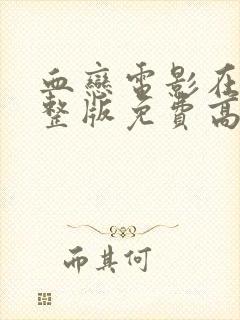 血戀電影在
整版免費高
而其何